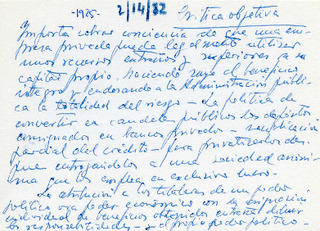 -1925- 2/14/32 Crítica objetiva
Importa cobrar conciencia de que una em-
presa privada pueda legalmente utilizar
unos recursos extraños y superiores a su
capital propio. Haciendo suyo el beneficio
íntegro y endosando a la Administración públi-
ca la totalidad del riesgo - La política de
convertir en caudales públicos los depósitos
consignados en bancos privados -
parcial del crédito - para privatizarlos des-
pués entregándolos a una sociedad anóni-
ma que los emplea en exclusivo lucro.
La atribución a los titulares de un poder
político un poder económico con su
individual de beneficios obtenidos
las responsabilidades - el propio poder político -